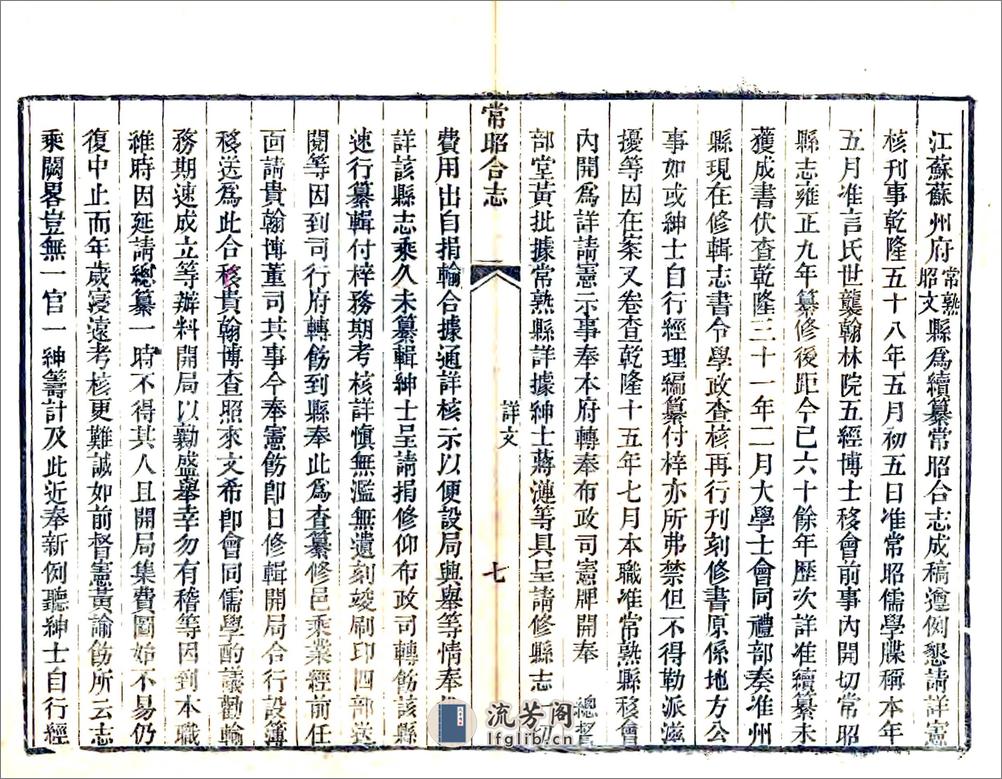 江蘇蘇州府常熟昭文縣爲續纂常昭合志成稿遵例懇請詳憲
核刊事乾隆五十八年五月初五日准常昭儒學牒稱本年
五月准言氏世襲翰林院五經博士移會前事內開切常昭
縣志雍正九年纂修後距今已六十餘年歷次詳准續纂未
獲成書伏查乾隆三十一年二月大學士會同禮部奏准州
縣現在修輯志書令學政查核再行刊刻修書原係地方公
事如或紳士自行經理編纂付梓亦所弗禁但不得勒派滋
擾等因在案又卷查乾隆十五年七月本職准常熟縣移會
內開爲詳請憲示事奉本府轉奉布政司憲牌開奉 總督
部堂黃批據常熟縣詳據紳士蔣漣等具呈請修縣志
常昭合志 詳文 七
費用出自捐輸合據通詳核示以便設局興舉等情奉批
詳該縣志乘久未纂輯紳士呈請捐修仰布政司轉飭該縣
速行纂輯付梓務期考核詳愼無濫無遺刻竣刷印四部送
閱等因到司行府轉飭到縣奉此爲查纂修邑乘業經前任
面請貴翰博董司其事今奉憲飭卽日修輯開局合行設簿
移送爲此合移貴翰博查照來文希卽會同儒學酌議勸輸
務期速成立等辦料開局以勷盛舉幸勿有稽等因到本職
維時因延請總纂一時不得其人且開局集費圖始不易仍
復中止而年歲寖遠考核更難誠如前督憲黃諭飭所云志
乘闕畧豈無一官一紳籌計及此近奉新例聽紳士自行經
流芳阁
lfglib.cn